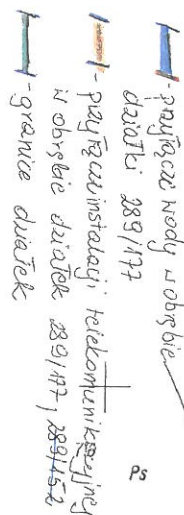 - przyłącze wody w obrębie
działki 289/177
- przyłącze instalacji telekomunikacyjnej
w obrębie działek 289/177, 289/152
- granice działek
Ps